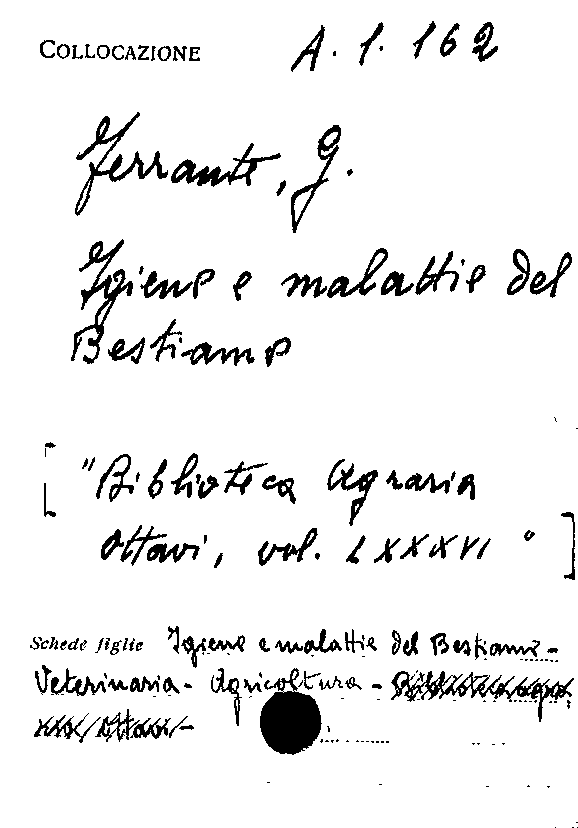 COLLOCAZIONE A. 1. 162
Ferrante, G.
Igiene e malattie del
Bestiame
["Biblioteca Agraria
Ottavi, vol. LXXXVI"]
Schede figlie Igiene e malattie del Bestiame -
Veterinaria - Agricoltura - Biblioteca agra
ria Ottavi -